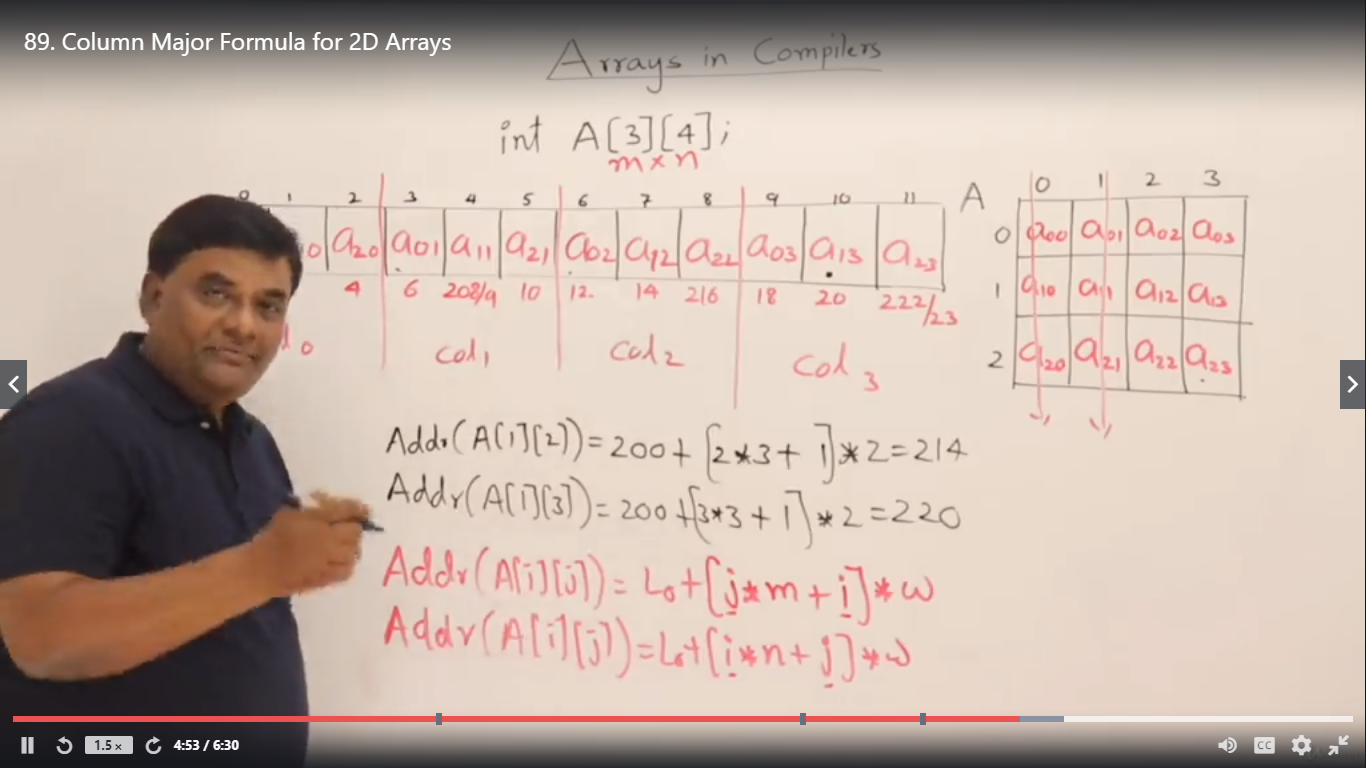 89. Column Major Formula for 2D Arrays
Arrays in Compilers
int A[3][4];
m × n
0 1 2 3 4 5 6 7 8 9 10 11
0 a20 a01 a11 a21 a02 a12 a22 a03 a13 a23
4 6 208/9 10 12. 14 216 18 20 222/23
l0 Col1 Col2 Col3
A 0 1 2 3
0 a00 a01 a02 a03
1 a10 a11 a12 a13
2 a20 a21 a22 a23
Addr(A[1][2]) = 200 + [2*3+1]*2 = 214
Addr(A[1][3]) = 200 + [3*3+1]*2 = 220
Addr(A[i][j]) = L0 + [j*m+i]*w
Addr(A[i][j]) = L0 + [i*n+j]*w
1.5 × 4:53 / 6:30 CC